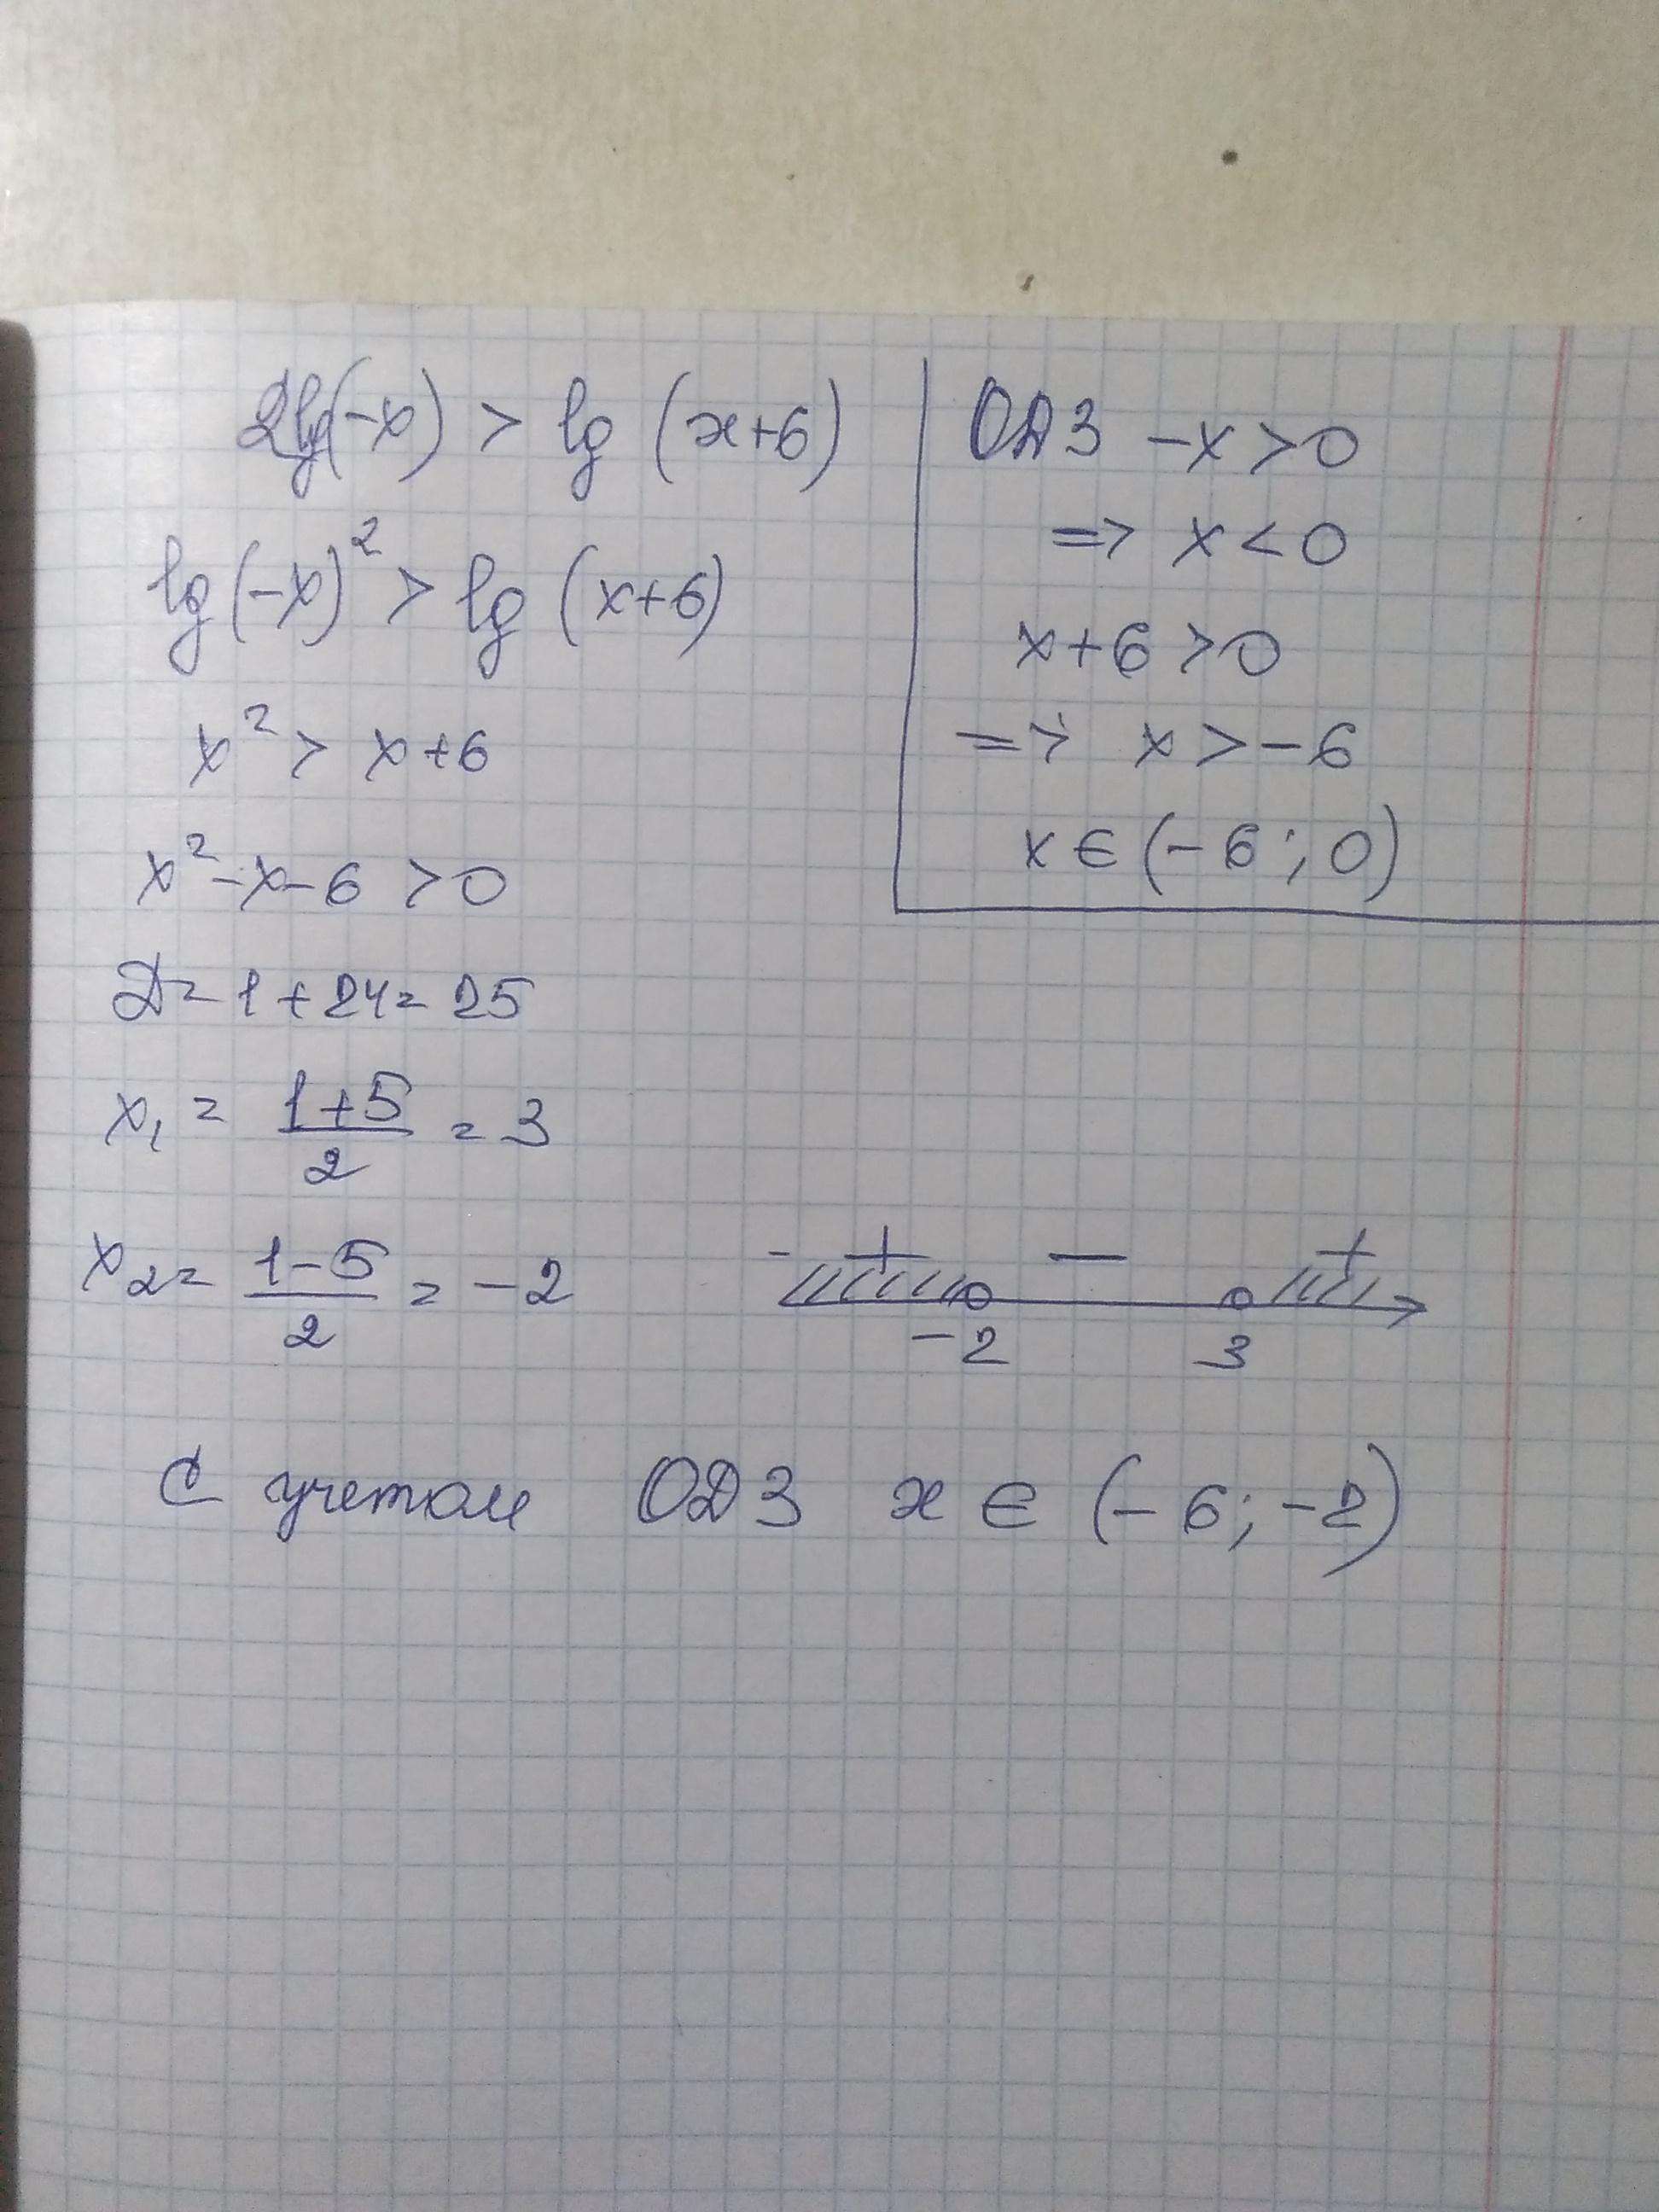 2lg(-x) > lg (x+6)
lg(-x)² > lg (x+6)
x² > x+6
x²-x-6 >0
D=1+24=25
x₁ = (1+5)/2 = 3
x₂ = (1-5)/2 = -2
ОДЗ -x>0
=> x<0
x+6>0
=> x>-6
x∈(-6;0)
- + − +
-2 3
С учетом ОДЗ x∈(-6;-2)